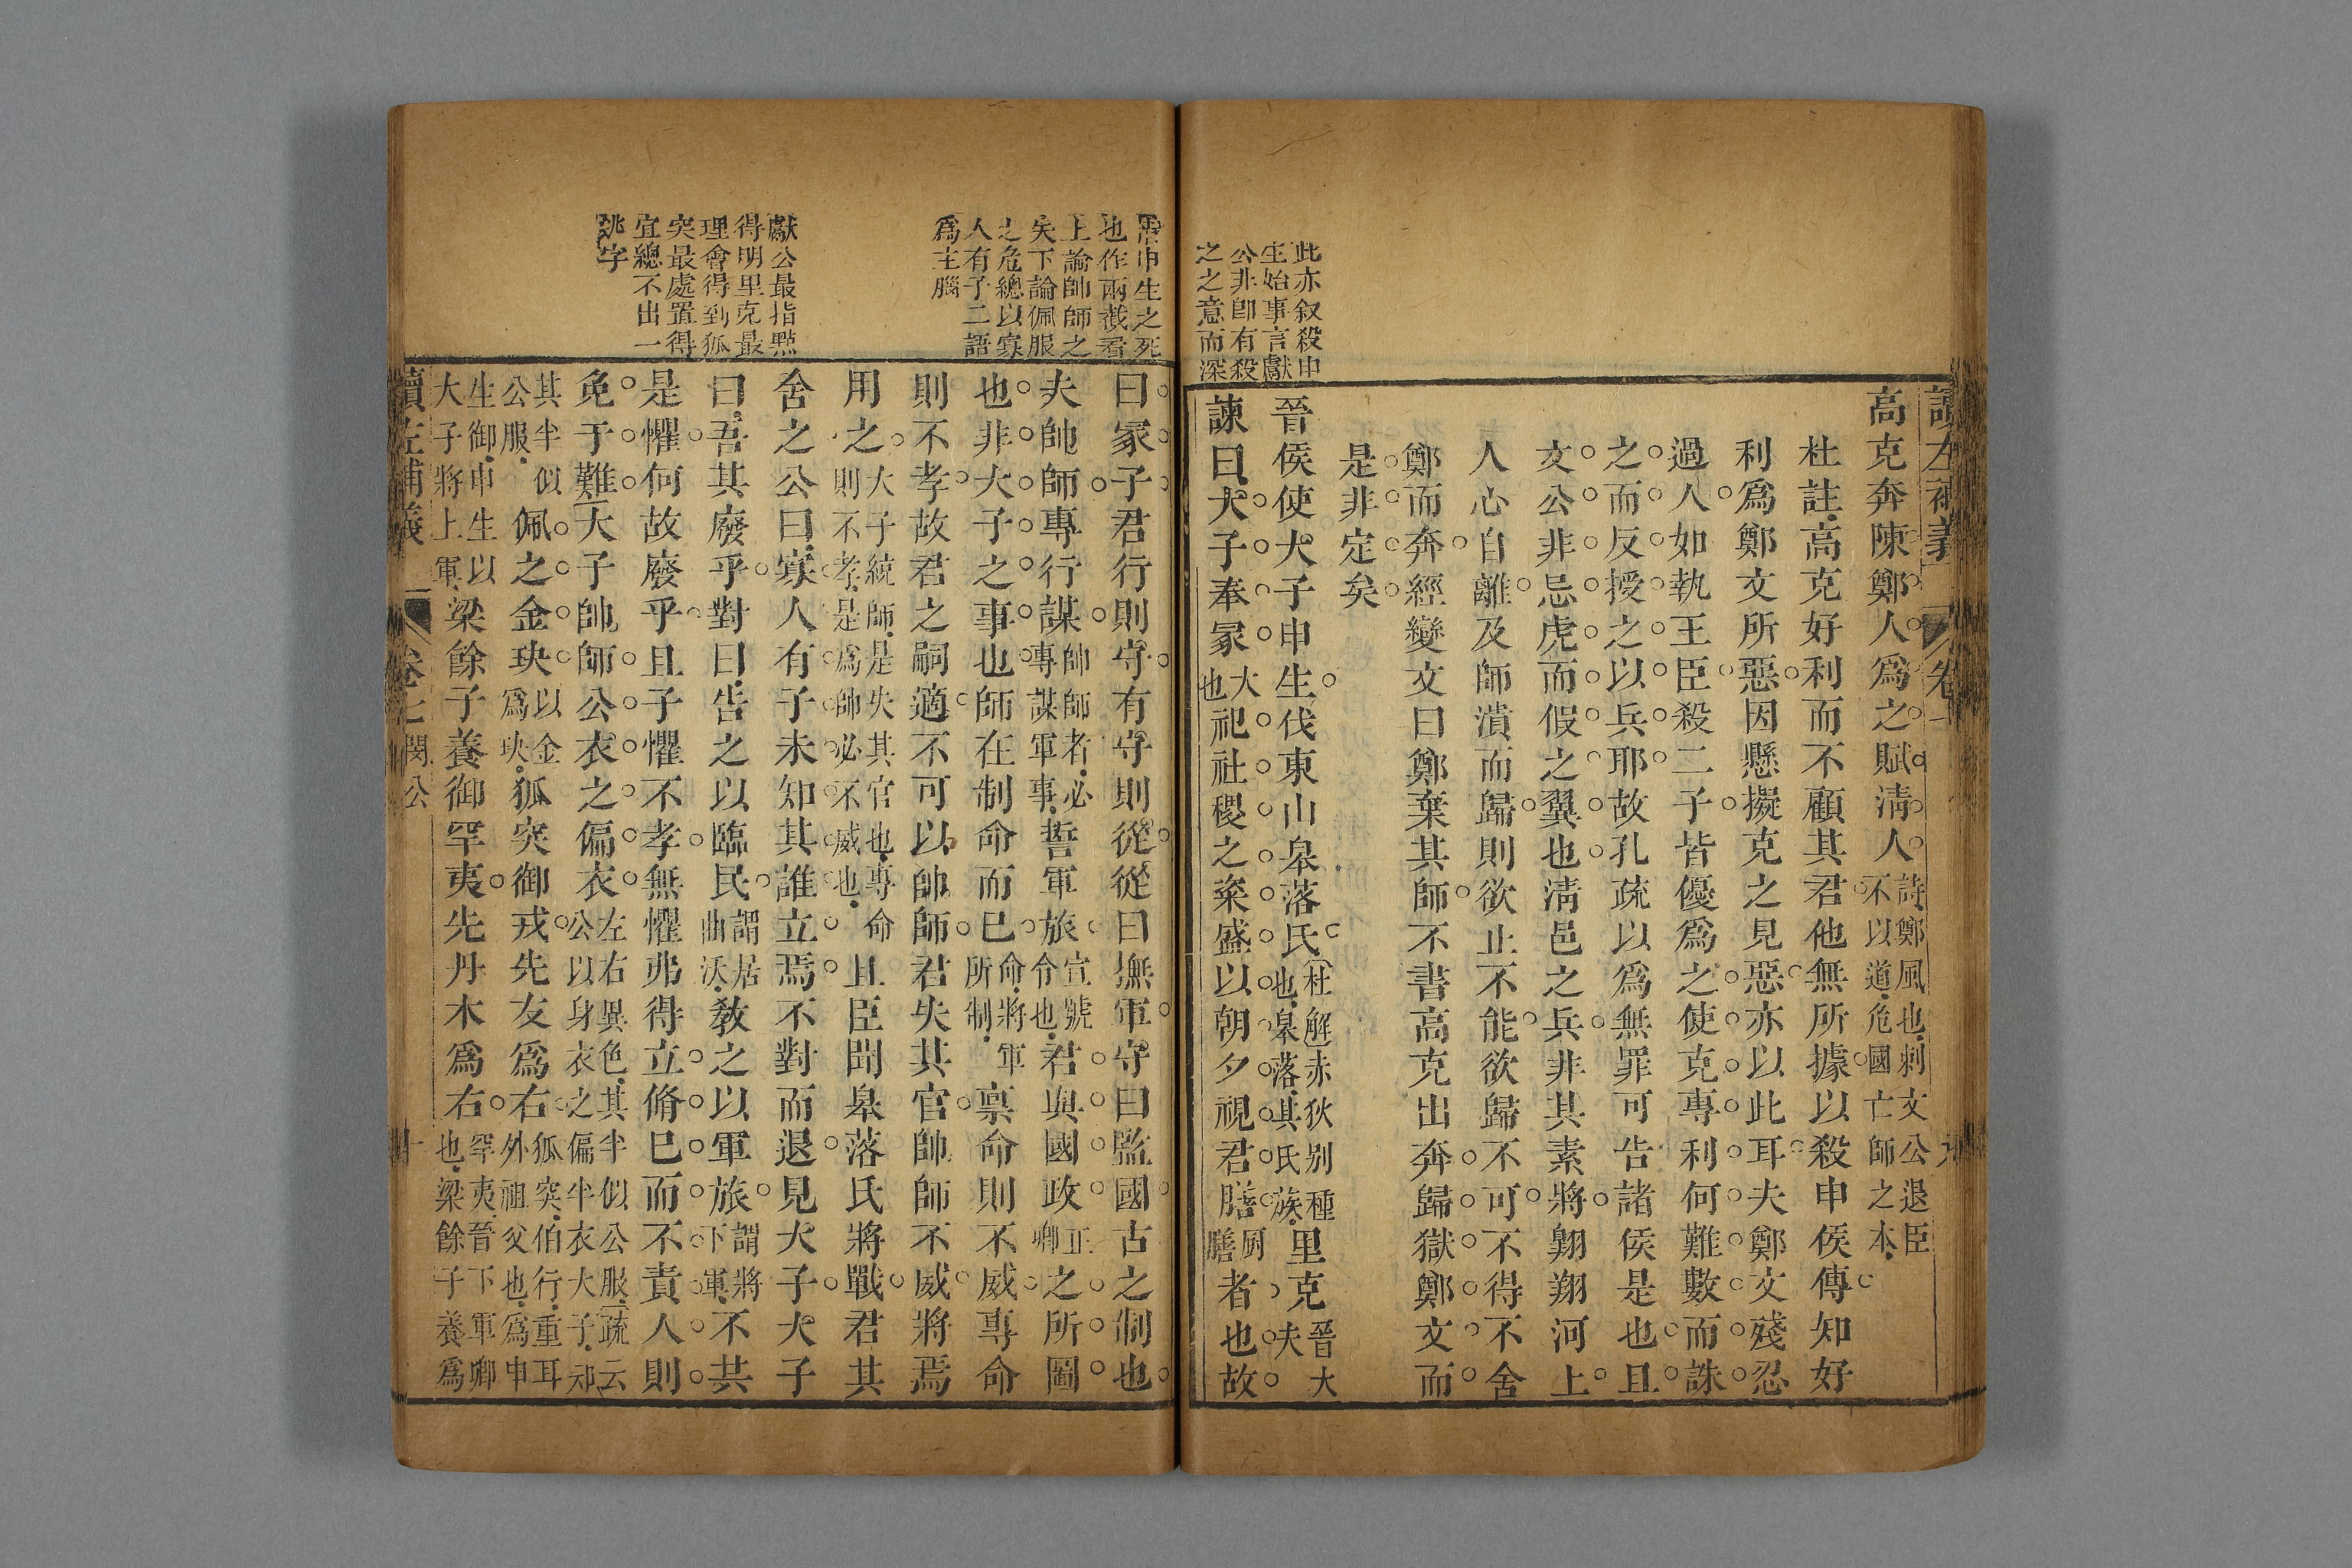 讀左補義
卷七
九
此亦叙殺申
生始事言獻
公非卽有殺
之之意而深
高克奔陳鄭人爲之賦淸人詩鄭風也刺文公退臣不以道危國亡師之本
杜註高克好利而不顧其君他無所據以殺申侯傳知好
利爲鄭文所惡因懸擬克之見惡亦以此耳夫鄭文殘忍
過人如執王臣殺二子皆優爲之使克專利何難數而誅
之而反授之以兵耶故孔疏以爲無罪可告諸侯是也且
文公非忌虎而假之翼也淸邑之兵非其素將翺翔河上
人心自離及師潰而歸則欲止不能欲歸不可不得不舍
鄭而奔經變文曰鄭棄其師不書高克出奔歸獄鄭文而
是非定矣
晉侯使大子申生伐東山皋落氏杜解赤狄别種也皋落其氏族里克晉大夫
諫曰大子奉冢大也祀社稷之粢盛以朝夕視君膳厨膳者也故
申生之死
也作兩截看
上論帥師之
矣下論佩服
之危總以寡
人有子二語
爲主腦
獻公最指㸃
得明里克最
理會得到狐
突最處置得
宜總不出一
字
曰冢子君行則守有守則從從曰撫軍守曰監國古之制也
夫帥師專行謀帥師者必專謀軍事誓軍旅宣號令也君與國政正卿之所圖
也非大子之事也師在制命而巳命將軍所制稟命則不威專命
則不孝故君之嗣適不可以帥師君失其官帥師不威將焉
用之大子統師是失其官也專命則不孝是爲帥必不威也且臣聞皋落氏將戰君其
舍之公曰寡人有子未知其誰立焉不對而退見大子大子
曰吾其廢乎對曰告之以臨民謂居曲沃教之以軍旅謂將下軍不共
是懼何故廢乎且子懼不孝無懼弗得立脩巳而不責人則
免于難大子帥師公衣之偏衣左右異色其半似公服疏云公以身衣之偏半衣大子
其半似公服佩之金玦以金爲玦狐突御戎先友爲右狐突伯行重耳外祖父也爲申
生御申生以大子將上軍梁餘子養御罕夷先丹木爲右罕夷晉下軍卿也梁餘子養爲
讀左補義
卷七
閔公
十